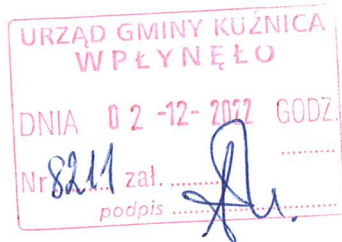 URZĄD GMINY KUŹNICA
WPŁYNĘŁO
DNIA 02 -12- 2022 GODZ.
..............
Nr 8211 zał. ..............
podpis ....................